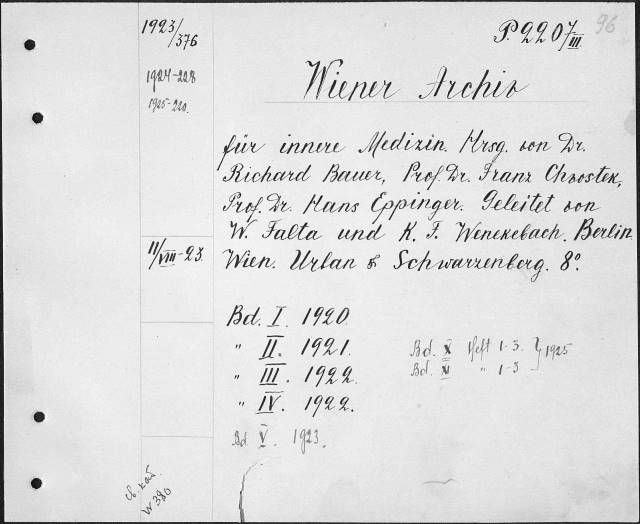 1923/376
1924-228
1925-220.
11/VIII-23.
св. кат.
W 380
P. 2207/III
96
Wiener Archiv
für innere Medizin. Hrsg. von Dr.
Richard Bauer, Prof. Dr. Franz Chvostek,
Prof. Dr. Hans Eppinger. Geleitet von
W. Falta und K. F. Wenckebach. Berlin
Wien. Urban & Schwarzenberg. 8°.
Bd. I. 1920.
" II. 1921.
" III. 1922.
" IV. 1922.
Bd. V. 1923.
Bd. X Heft 1-3. } 1925
Bd. XI " 1-3